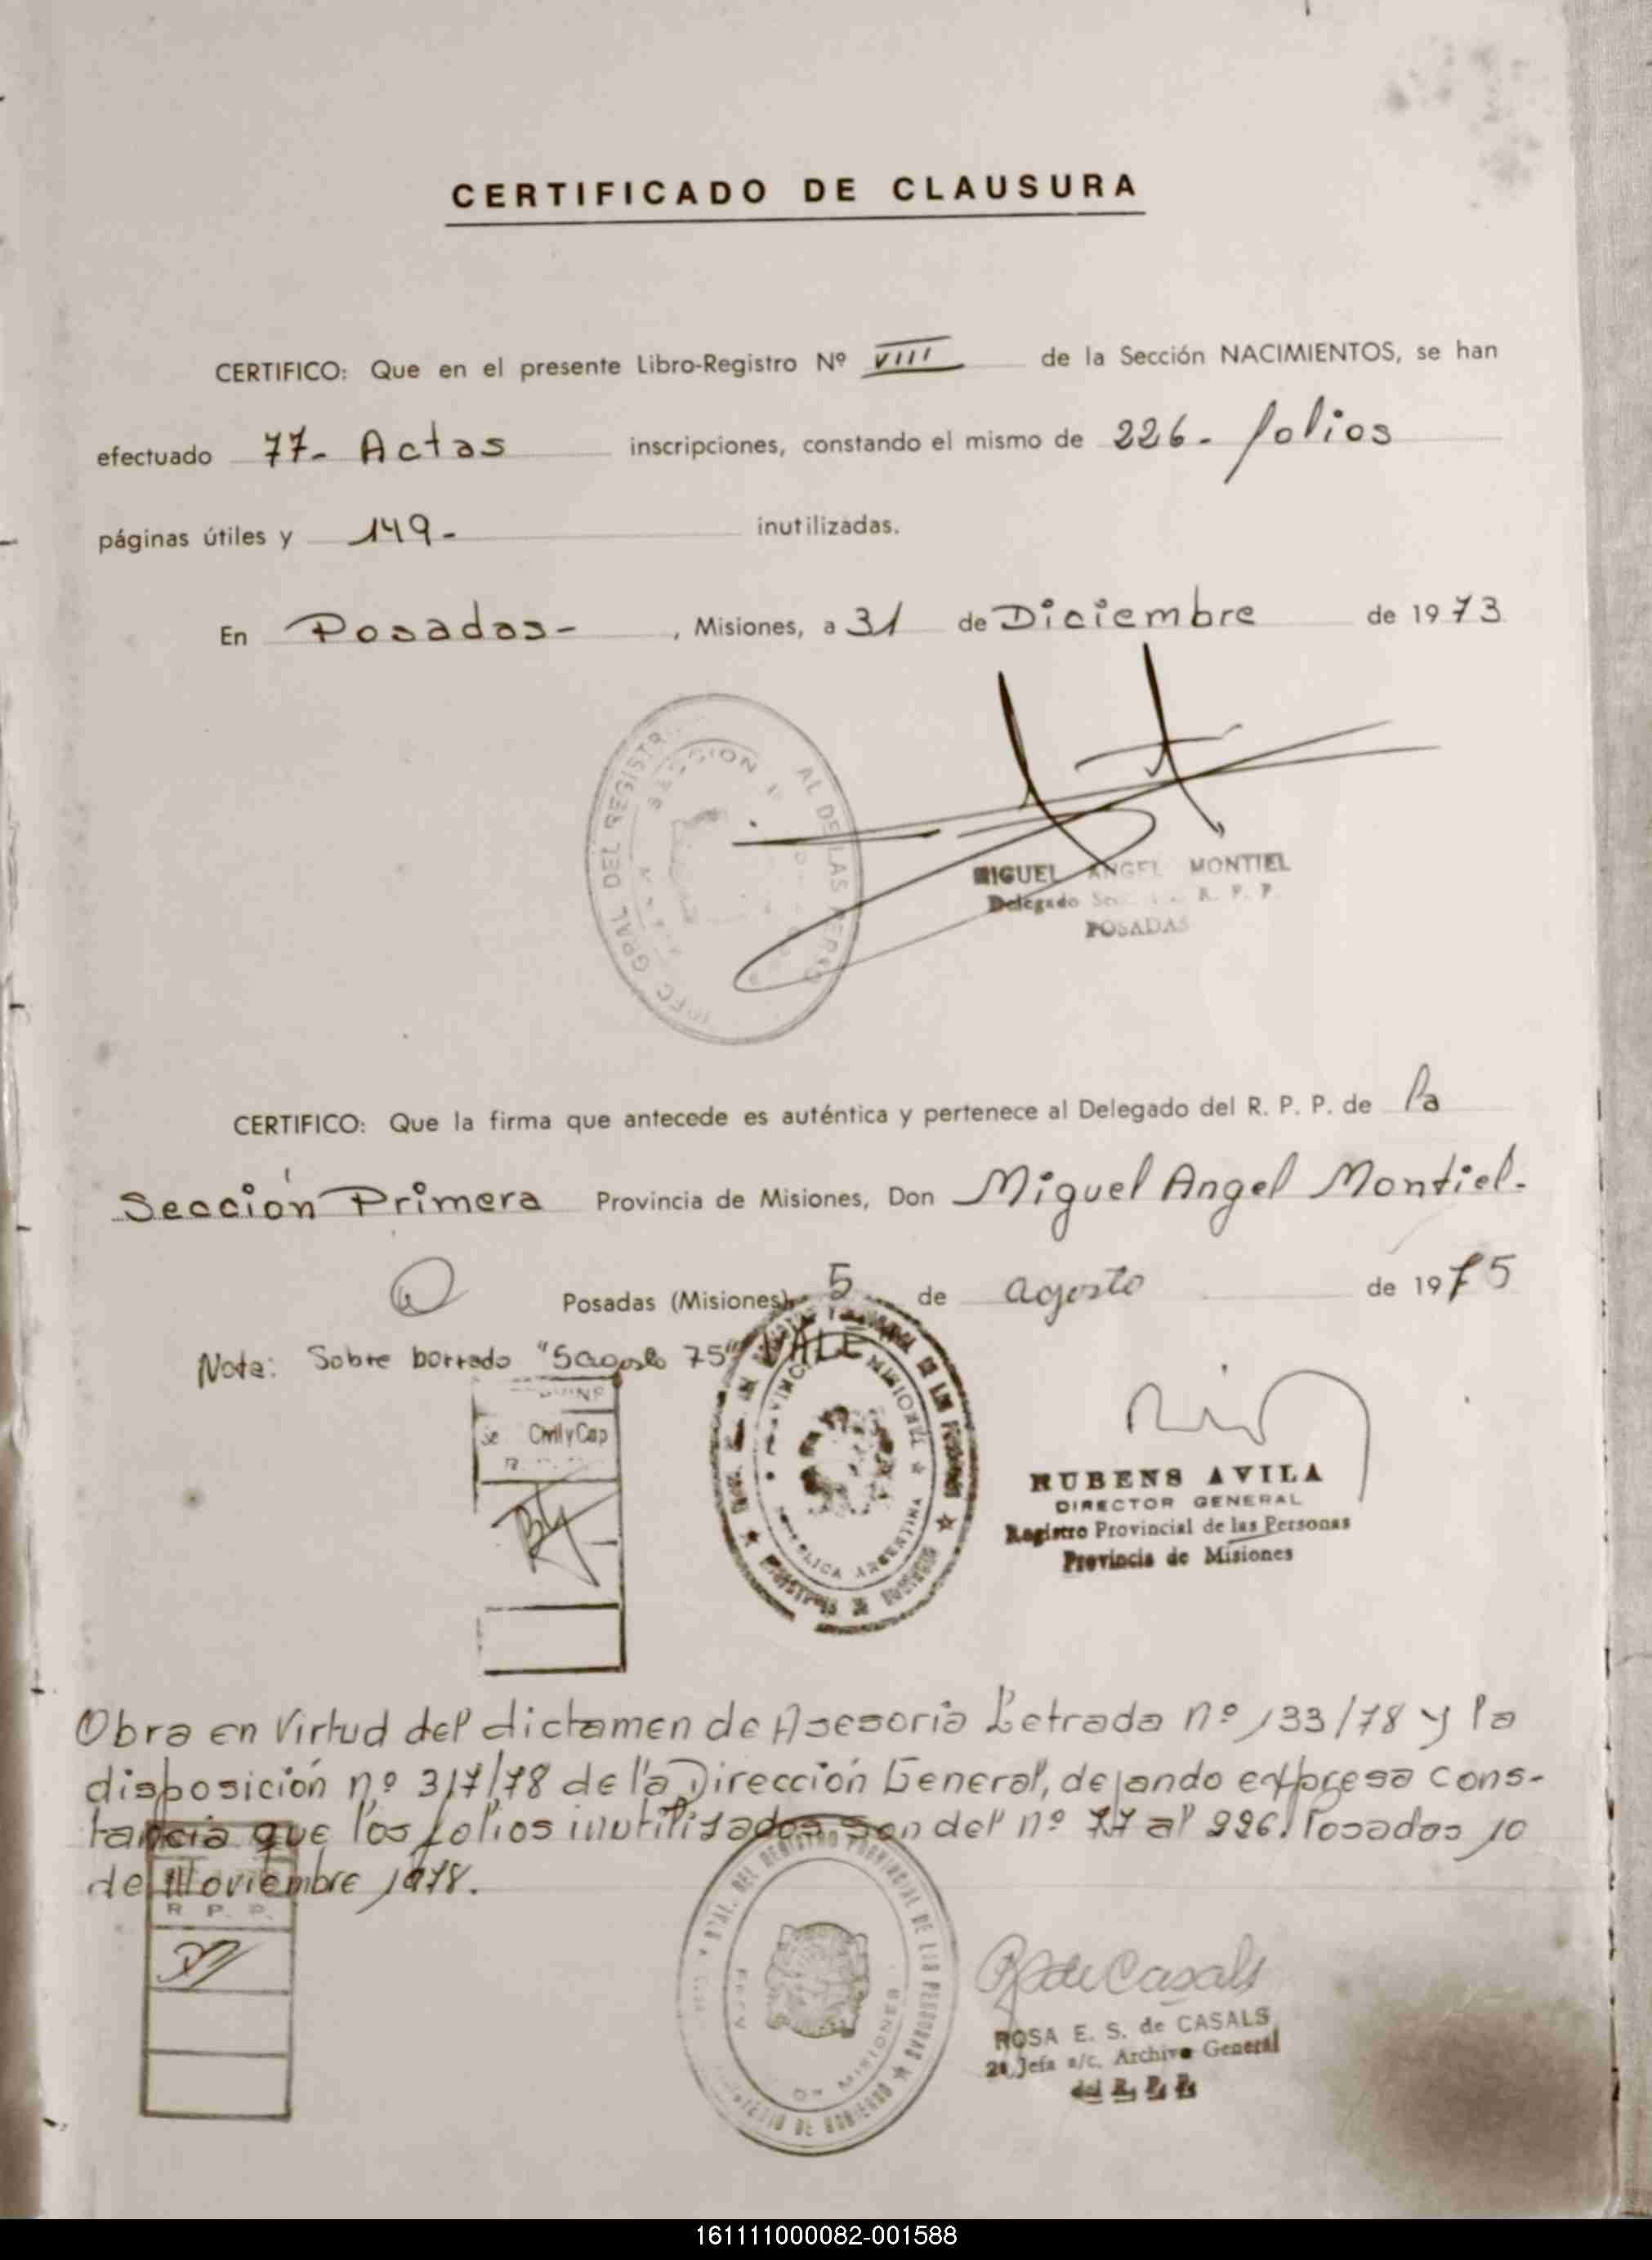 CERTIFICADO DE CLAUSURA
CERTIFICO: Que en el presente Libro-Registro Nº VIII de la Sección NACIMIENTOS, se han
efectuado 77- Actas inscripciones, constando el mismo de 226- folios
páginas útiles y 149- inutilizadas.
En Posadas- , Misiones, a 31 de Diciembre de 1973
GRAL DEL REGISTR AL DE LAS PERS
SECCION 1ª
MIGUEL ANGEL MONTIEL
Delegado R. P. P.
POSADAS
CERTIFICO: Que la firma que antecede es auténtica y pertenece al Delegado del R. P. P. de la
Sección Primera Provincia de Misiones, Don Miguel Angel Montiel-
Posadas (Misiones), 5 de agosto de 1975
Nota: Sobre borrado "5 agosto 75" VALE
Civil y Cap
PROVINCIA MISIONES
REPUBLICA ARGENTINA
MINISTERIO DE GOBIERNO
RUBENS AVILA
DIRECTOR GENERAL
Registro Provincial de las Personas
Provincia de Misiones
Obra en Virtud del dictamen de Asesoria Letrada nº 133/78 y la
disposición nº 317/78 de la Dirección General, dejando expresa cons-
tancia que los folios inutilizados son del nº 77 al 226. Posadas 10
de Noviembre 1978.
R. P. P.
GRAL. DEL REGISTRO PROVINCIAL DE LAS PERSONAS
DE MISIONES
MINISTERIO DE GOBIERNO
R de Casals
ROSA E. S. de CASALS
2ª Jefa a/c. Archivo General
del R. P. P.
161111000082-001588